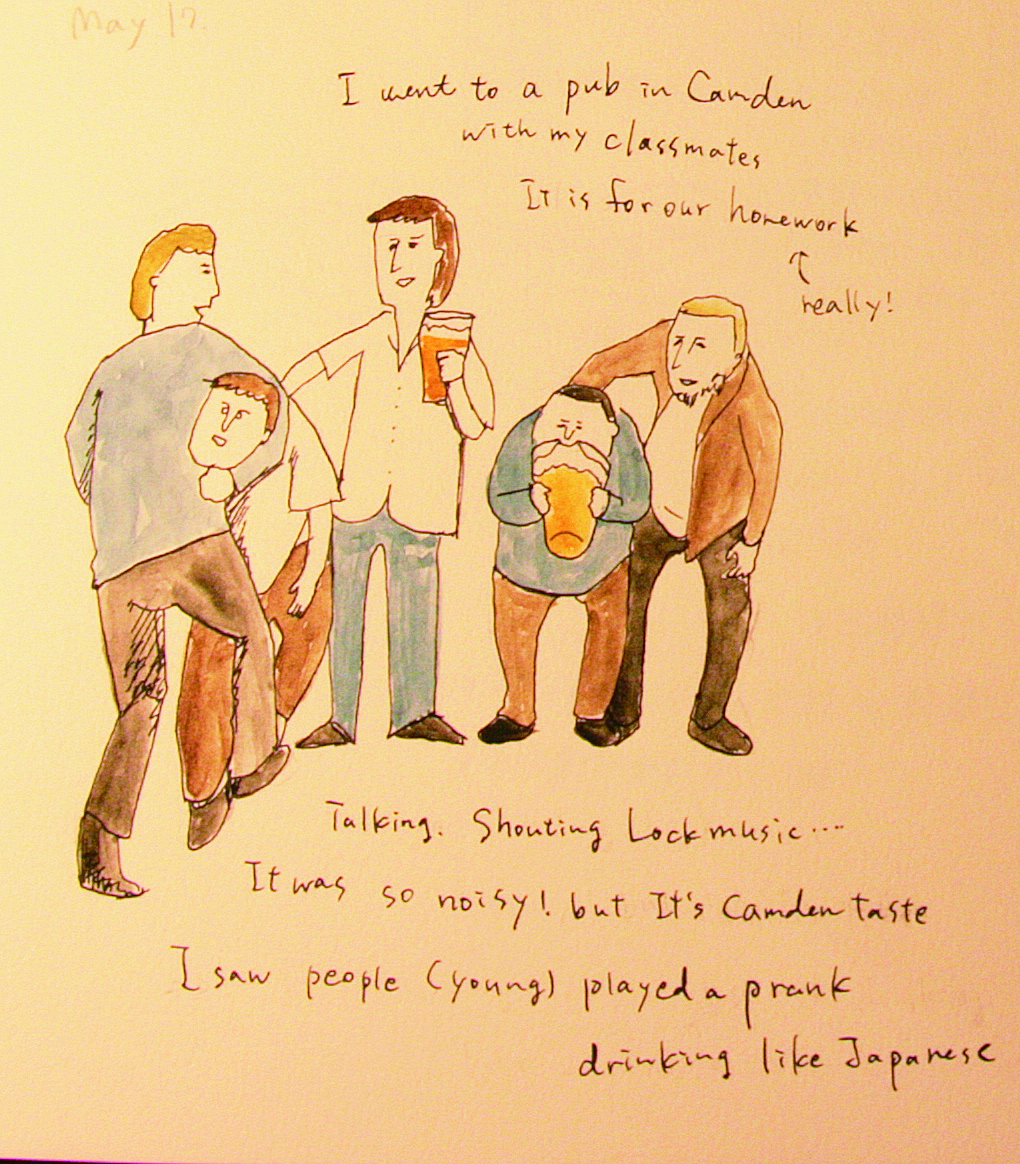 May 17.
I went to a pub in Camden
with my classmates
It is for our homework
really!
Talking. Shouting Lock music....
It was so noisy! but It's Camden taste
I saw people (young) played a prank
drinking like Japanese